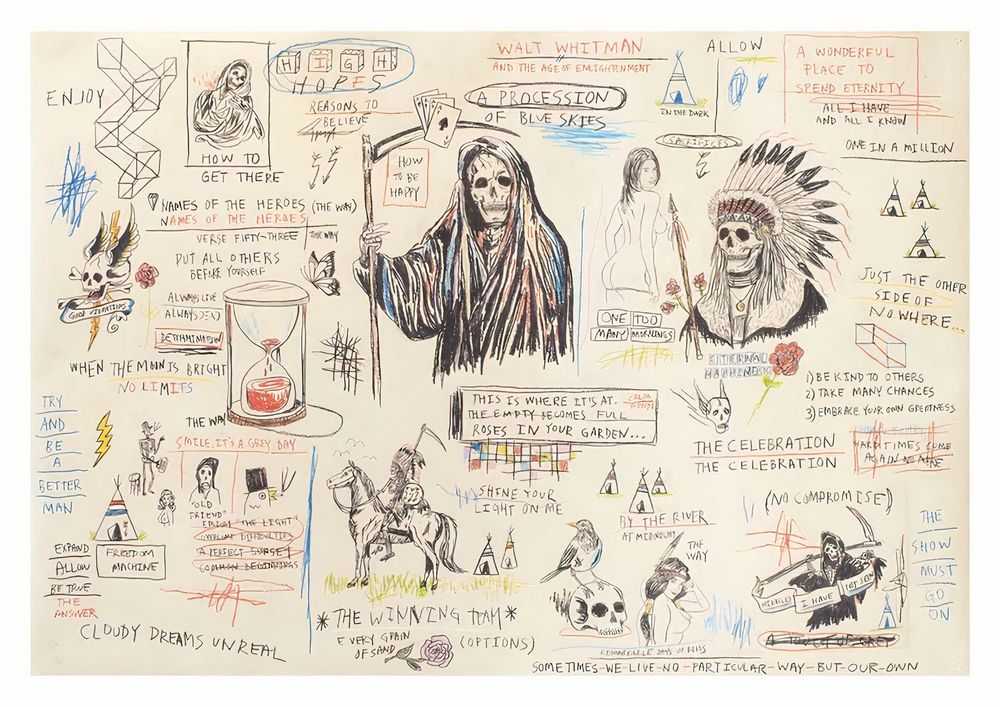 ENJOY
HOW TO
GET THERE
HIGH
HOPES
REASONS TO
BELIEVE
WALT WHITMAN
AND THE AGE OF ENLIGHTENMENT
A PROCESSION
OF BLUE SKIES
IN THE DARK
ALLOW
A WONDERFUL
PLACE TO
SPEND ETERNITY
ALL I HAVE
AND ALL I KNOW
ONE IN A MILLION
HOW
TO BE
HAPPY
SACRIFICES
NAMES OF THE HEROES (THE WAY)
NAMES OF THE HEROES
VERSE FIFTY-THREE
THE WAY
PUT ALL OTHERS
BEFORE YOURSELF
GOOD VIBRATIONS
ALWAYS LIVE
DETERMINATION
WHEN THE MOON IS BRIGHT
NO LIMITS
THE WAY
ONE TOO
MANY MORNINGS
ETERNAL
HAPPINESS
JUST THE OTHER
SIDE OF
NOWHERE...
1) BE KIND TO OTHERS
2) TAKE MANY CHANCES
3) EMBRACE YOUR OWN GREATNESS
THIS IS WHERE IT'S AT.
THE EMPTY BECOMES FULL
ROSES IN YOUR GARDEN...
THE CELEBRATION
THE CELEBRATION
HARD TIMES COME
AGAIN NO MORE
TRY
AND
BE
A
BETTER
MAN
SMILE, IT'S A GREY DAY
"OLD
FRIEND"
"THE LIGHT"
A PERFECT SUNSET
COMMON BEGINNINGS
EXPAND
ALLOW
BE TRUE
THE
ANSWER
FREEDOM
MACHINE
CLOUDY DREAMS UNREAL
SHINE YOUR
LIGHT ON ME
BY THE RIVER
THE
WAY
*THE WINNING TEAM*
EVERY GRAIN
OF SAND
(OPTIONS)
(NO COMPROMISE)
I HAVE
A TOUCH OF GREY
THE
SHOW
MUST
GO
ON
SOMETIMES-WE-LIVE-NO-PARTICULAR-WAY-BUT-OUR-OWN